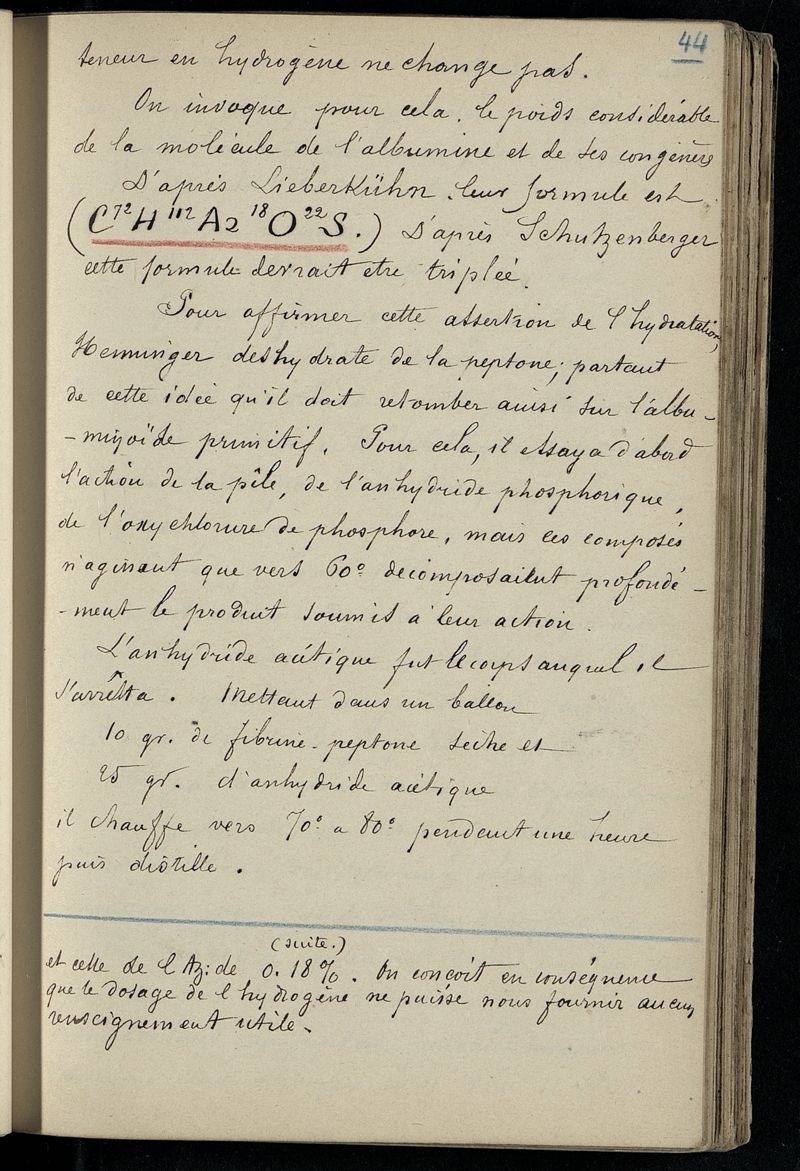 44
teneur en hydrogène ne change pas.
On invoque pour cela, le poids considérable
de la molécule de l'albumine et de ses congénères
D'après Lieberkühn leur formule est
(C⁷²H¹¹²Az¹⁸O²²S.) D'après Schutzenberger
cette formule devrait etre triplée.
Pour affirmer cette assertion de l'hydratation,
Henninger deshydrate de la peptone; partant
de cette idée qu'il doit retomber ainsi sur l'albu-
-minoïde primitif. Pour cela, il essaya d'abord
l'action de la pile, de l'anhydride phosphorique,
de l'oxychlorure de phosphore, mais ces composés
n'agissant que vers 60° décomposaient profondé-
-ment le produit soumis à leur action.
L'anhydride acétique fut le corps auquel il
s'arrêtta. Mettant dans un ballon
10 gr. de fibrine-peptone sèche et
25 gr. d'anhydride acétique
il chauffe vers 70° a 80° pendant une heure
puis distille.
(suite.)
et celle de l'Az: de 0.18%. On conçoit en conséquence
que le dosage de l'hydrogène ne puisse nous fournir aucun
renseignement utile.